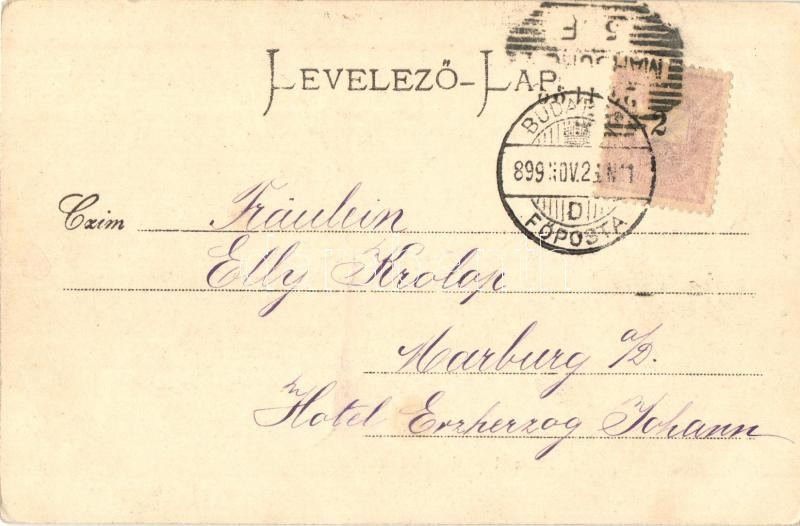 LEVELEZŐ-LAP.
5
F
MARBURG
2
BUDAPEST
899 NOV. 2
D
FŐPOSTA
Czim Fräulein
Elly Krolop
Marburg a/D.
Hotel Erzherzog Johann